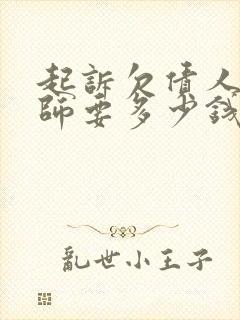 起訴欠債人
師要多少錢
亂世小王子